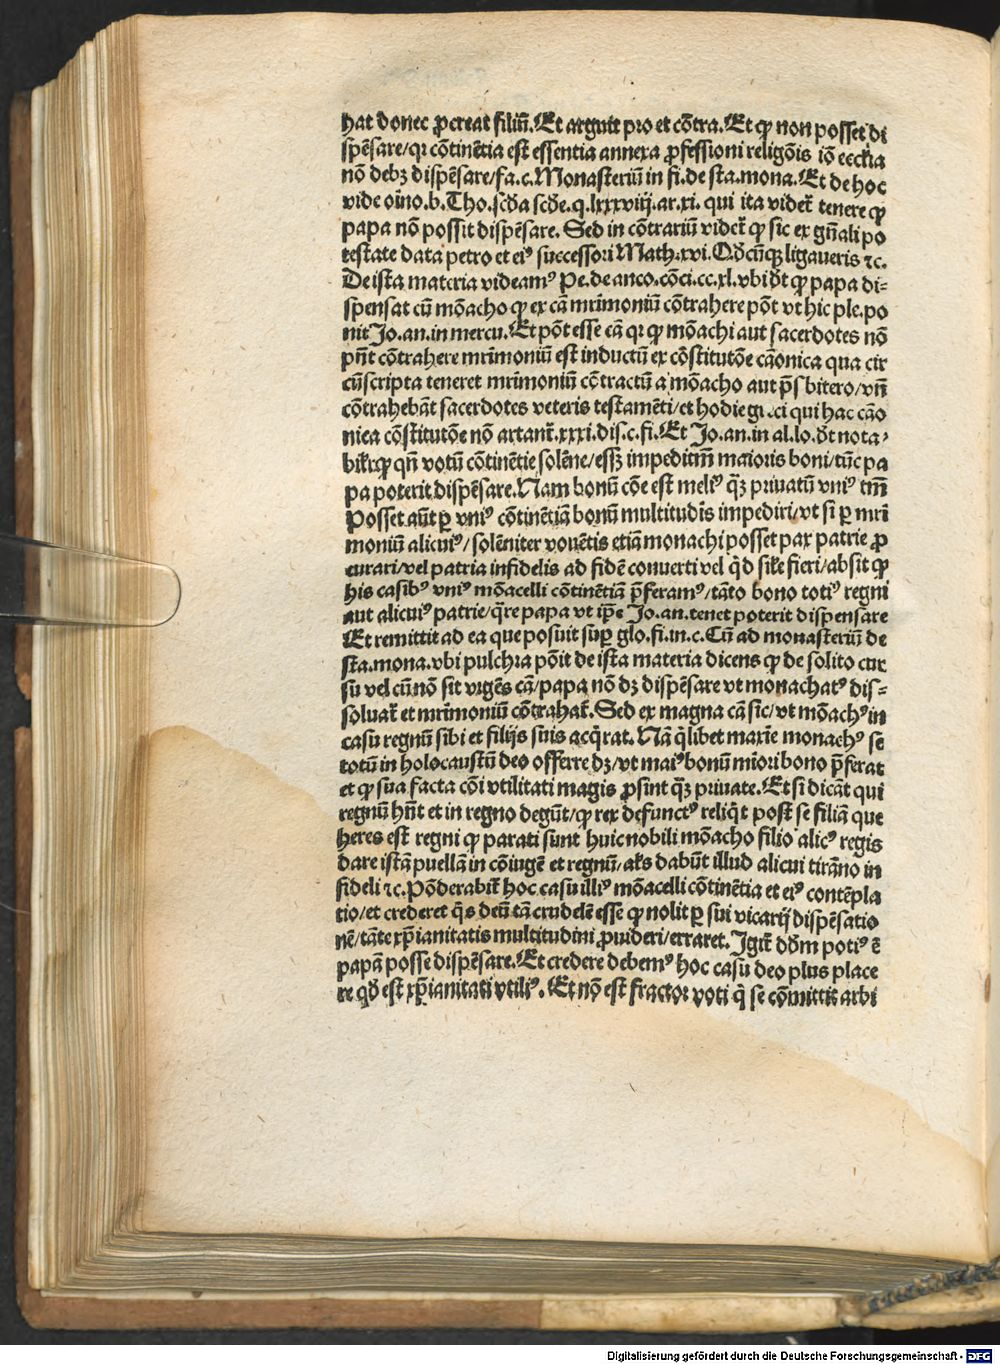 hat donec ꝓcreat filiū. Et arguit pro et cōtra. Et ꝙ non posset di
spēsare/qꝛ cōtinētia est essentia annexa ꝓfessioni religōis iō eccłia
nō debꝫ dispēsare/fa.c. Monasteriū in fi. de sta.mona. Et de hoc
vide oīno.b. Tho. scđa scđe.q.lxxxviij.ar.xi. qui ita videt᷑ tenere ꝙ
papa nō possit dispēsare. Sed in cōtrariū videt᷑ ꝙ sic ex gn̄ali po
testate data petro et eiꝰ successori Math.xvi. Qđcūqꝫ ligaueris ⁊c.
De ista materia videamꝰ Pe. de anco. cōci.cc.xl. vbi đt ꝙ papa di⸗
spensat cū mōacho ꝙ ex cā mr̄imoniū cōtrahere pōt vt hic ple. po
nit Jo.an. in mercu. Et pōt esse cā qꝛ ꝙ mōachi aut sacerdotes nō
pn̄t cōtrahere mr̄imoniū est inductū ex cōstitutōe cāonica qua cir
cūscripta teneret mr̄imoniū cōtractū a mōacho aut p̄sbitero/vn̄
cōtrahebāt sacerdotes veteris testamēti/et hodie g  ci qui hac cāo
nica cōstitutōe nō artant᷑.xxxi.dis.c.fi. Et Jo.an. in al.lo. đt nota⸗
bilr̄ ꝙ qn̄ votū cōtinētie solēne/essꝫ impeditm̄ maioris boni/tūc pa
pa poterit dispēsare. Nam bonū cōe est meliꝰ qꝫ̄ priuatū vniꝰ tm̄
Posset aūt ꝑ vniꝰ cōtinētiā bonū multitudīs impediri/vt si ꝑ mr̄i
moniū alicuiꝰ/solēniter vouētis etiā monachi posset pax patrie ꝓ
curari/vel patria infidelis ad fidē conuerti vel qđ sile fieri/absit ꝙ
his casibꝰ vniꝰ mōacelli cōtinētiā p̄feramꝰ/tāto bono totiꝰ regni
aut alicuiꝰ patrie/qre papa vt ip̄e Jo.an. tenet poterit dispensare
Et remittit ad ea que posuit suꝑ glo.fi. in.c. Cū ad monasteriū de
sta.mona. vbi pulchra pōit de ista materia dicens ꝙ de solito cur
su vel cū nō sit vrgēs cā/papa nō dꝫ dispēsare vt monachatꝰ dis⸗
soluat᷑ et mr̄imoniū cōtrahat᷑. Sed ex magna cā sic/vt mōachꝰ in
casu regnū sibi et filijs suis acq̄rat. Nā q̄libet maxīe monachꝰ se
totū in holocaustū deo offerre dꝫ/vt maiꝰ bonū miori bono p̄ferat
et ꝙ sua facta cōi vtilitati magis ꝓsint qꝫ̄ priuate. Et si dicāt qui
regnū hn̄t et in regno degūt/ꝙ rex defunctꝰ reliq̄t post se filiā que
heres est regni ꝙ parati sunt huic nobili mōacho filio alicꝰ regis
dare istā puellā in cōiugē et regnū/als dabūt illud alicui tirāno in
fideli ⁊c. Pōderabit᷑ hoc casu illiꝰ mōacelli cōtinētia et eiꝰ contēpla
tio/et crederet q̄s deū tā crudelē esse ꝙ nolit ꝑ sui vicarij dispēsatio
nē/tāte xp̄ianitatis multitudini ꝓuideri/erraret. Igit᷑ dđm potiꝰ ē
papā posse dispēsare. Et credere debemꝰ hoc casu deo plus place
re qđ est xp̄ianitati vtiliꝰ. Et nō est fractor voti q̄ se cōmittit arbi
Digitalisierung gefördert durch die Deutsche Forschungsgemeinschaft - DFG